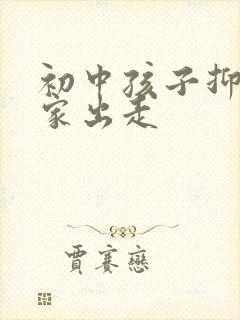 初中孩子抑
家出走
賈赛戀